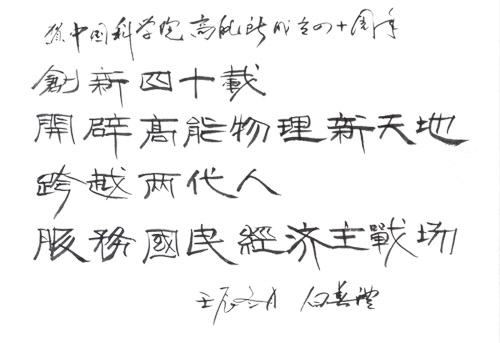 賀中国科学院高能所成立四十周年
創新四十載
開辟高能物理新天地
跨越两代人
服務國民經济主戰场
壬辰 月 白春禮